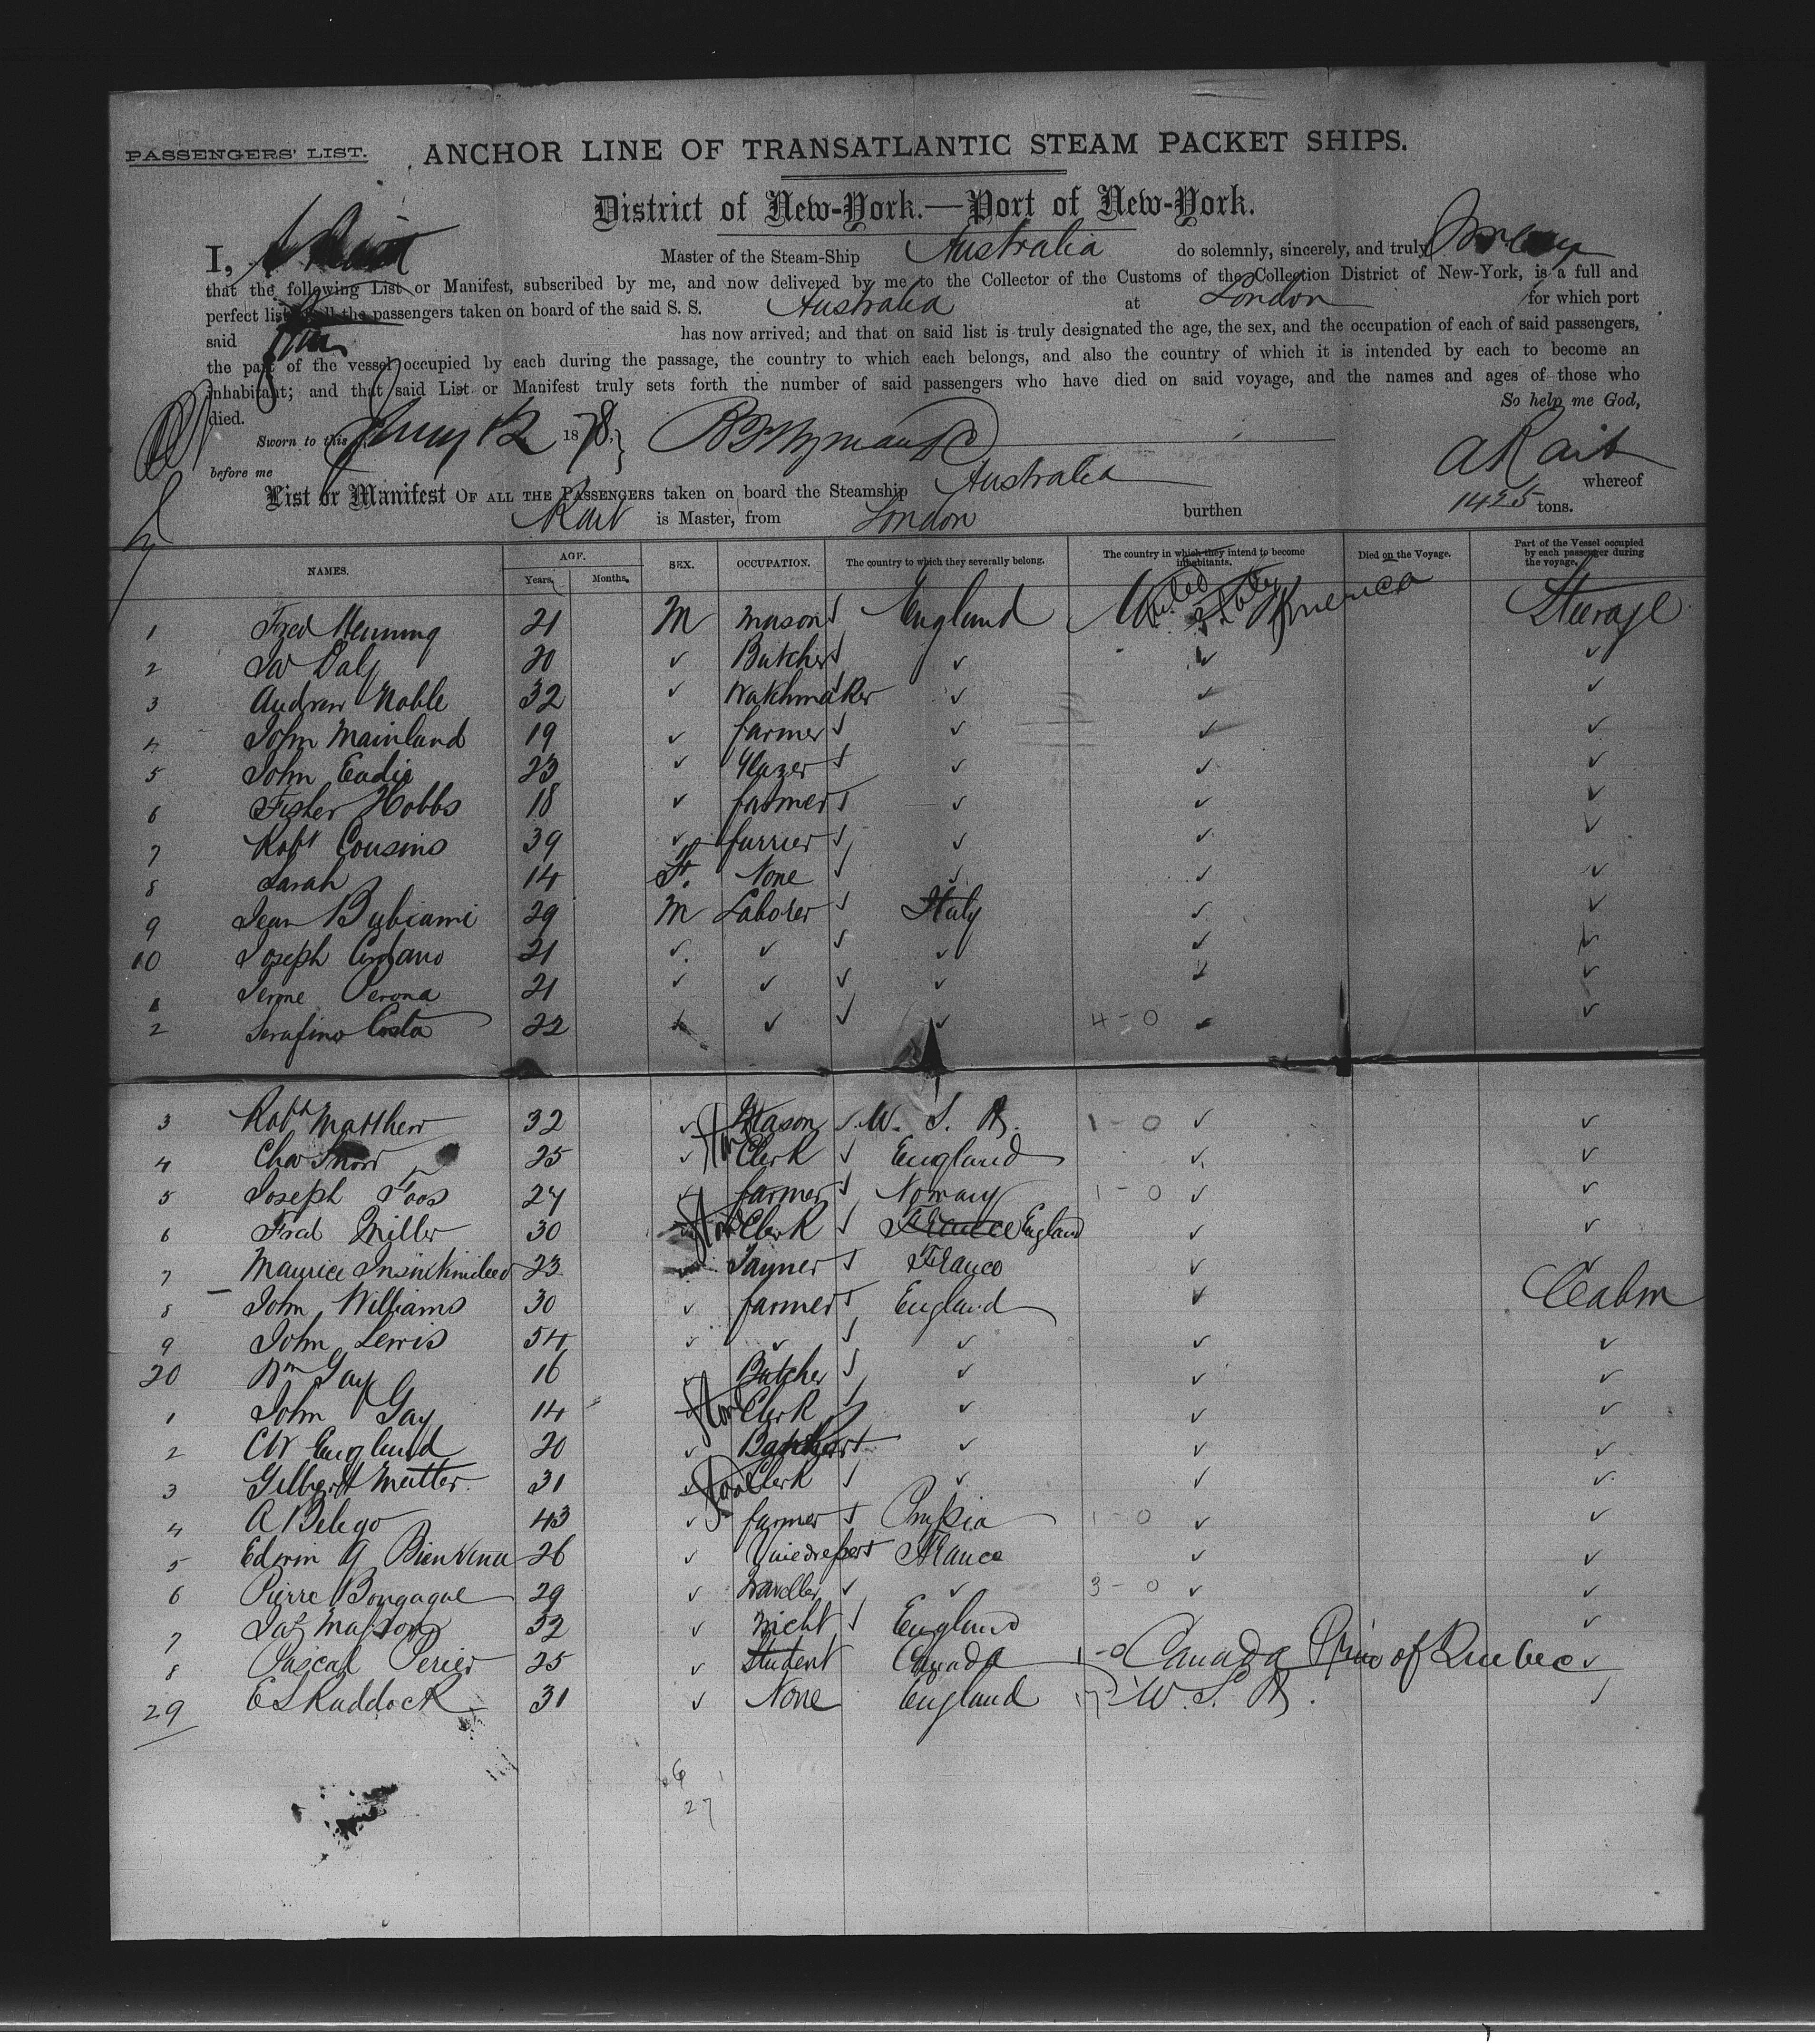 PASSENGERS' LIST. ANCHOR LINE OF TRANSATLANTIC STEAM PACKET SHIPS.
District of New-York.—Port of New-York.
I, Master of the Steam-Ship Australia do solemnly, sincerely, and truly
that the following List or Manifest, subscribed by me, and now delivered by me to the Collector of the Customs of the Collection District of New-York, is a full and
perfect list of all the passengers taken on board of the said S. S. Australia at London for which port
said has now arrived; and that on said list is truly designated the age, the sex, and the occupation of each of said passengers,
the part of the vessel occupied by each during the passage, the country to which each belongs, and also the country of which it is intended by each to become an
inhabitant; and that said List or Manifest truly sets forth the number of said passengers who have died on said voyage, and the names and ages of those who
died. So help me God,
Sworn to this 12 1878,
before me A Rait
List or Manifest OF ALL THE PASSENGERS taken on board the Steamship Australia whereof
Rait is Master, from London burthen 1425 tons.
NAMES. AGE. Years. Months. SEX. OCCUPATION. The country to which they severally belong. The country in which they intend to become inhabitants. Died on the Voyage. Part of the Vessel occupied by each passenger during the voyage.
1 Fred Henning 21 M Mason England United States of America Steerage
2 Daly 20 ✓ Butcher ✓ ✓ ✓
3 Andrew Noble 32 ✓ Watchmaker ✓ ✓ ✓
4 John Mainland 19 ✓ farmer ✓ ✓ ✓
5 John Eadie 23 ✓ Glazer ✓ ✓ ✓
6 Fisher Hobbs 18 ✓ farmer ✓ ✓ ✓
7 Robt Cousins 39 ✓ furrier ✓ ✓ ✓
8 Sarah 14 F. None ✓ ✓ ✓
9 Jean Bubiami 29 M Laborer Italy ✓ ✓
10 Joseph 21 ✓ ✓ ✓ ✓ ✓
1 Perona 21 ✓ ✓ ✓ ✓ ✓
2 Serafino Costa 22 ✓ ✓ ✓ 4-0 ✓ ✓
3 Robt Matthew 32 ✓ Mason U. S. A. 1-0 ✓ ✓
4 Chas Snow 25 ✓ Clerk England ✓ ✓
5 Joseph Foos 27 ✓ farmer Norway 1-0 ✓ ✓
6 Fred Miller 30 Clerk France England ✓ ✓
7 Maurice 23 Tanner France ✓
8 John Williams 30 ✓ farmer England ✓ Cabin
9 John Lewis 54 ✓ ✓ ✓ ✓ ✓
20 Wm Gay 16 Butcher ✓ ✓ ✓
1 John Gay 14 Clerk ✓ ✓ ✓
2 CW England 20 ✓ ✓ ✓ ✓
3 Gilbert Mutter 31 ✓ Clerk ✓ ✓ ✓
4 A Belego 43 ✓ farmer Prussia 1-0 ✓ ✓
5 Edwin G Bienvenu 26 ✓ Vinedresser France ✓ ✓
6 Pierre Bongague 29 ✓ Traveller ✓ 3-0 ✓ ✓
7 Jas Masson 32 ✓ Micht England ✓
8 Pascal Perier 25 ✓ Student Canada 1-0 Canada Prine of Quebec ✓
29 E S Ruddock 31 ✓ None England U. S. A. ✓
27